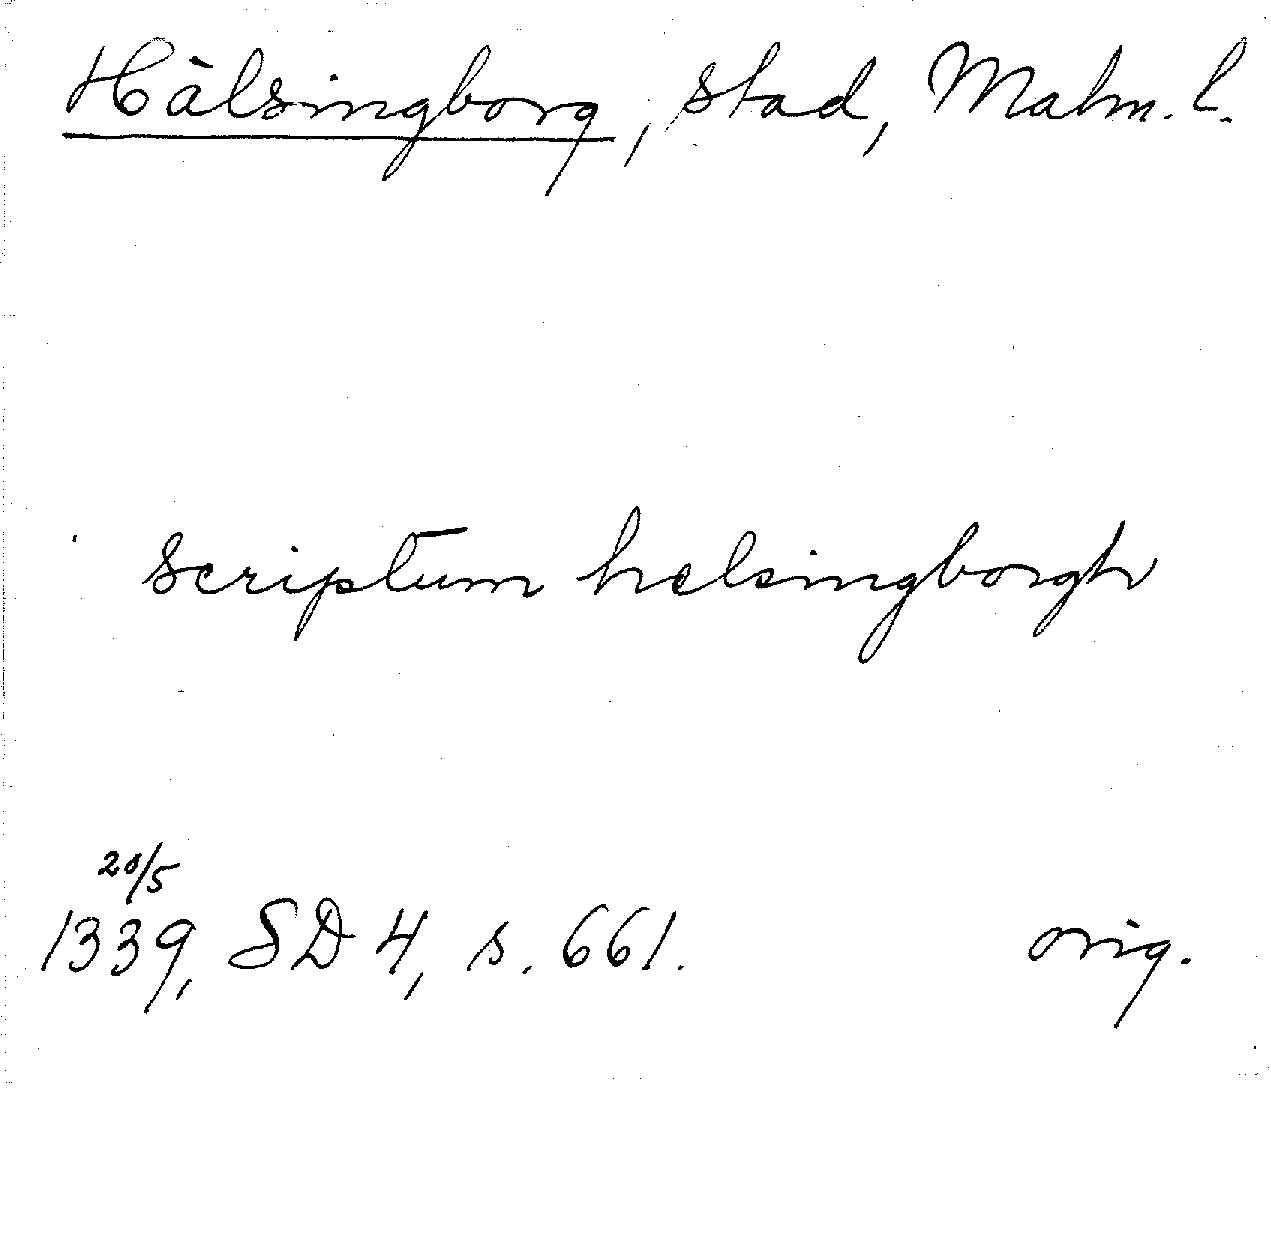 Hälsingborg, stad, Malm. l.
Scriptum helsingborgh
20/5
1339, SD 4, s. 661. orig.